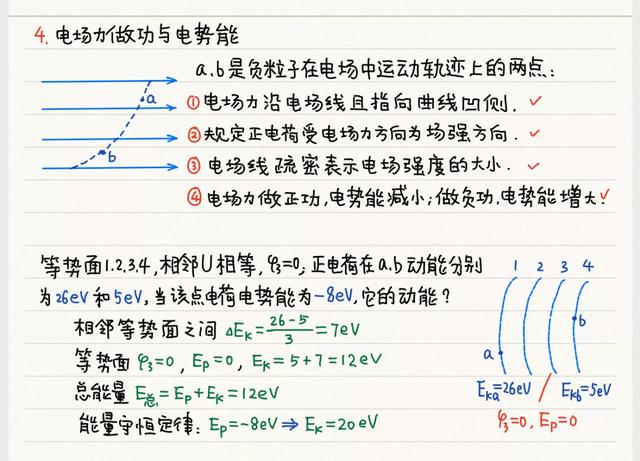 4. 电场力做功与电势能
a.b是负粒子在电场中运动轨迹上的两点:
a
b
①电场力沿电场线且指向曲线凹侧. ✓
②规定正电荷受电场力方向为场强方向. ✓
③电场线疏密表示电场强度的大小. ✓
④电场力做正功,电势能减小;做负功,电势能增大. ✓
等势面1.2.3.4,相邻U相等,φ₃=0;正电荷在a.b动能分别
为26eV和5eV,当该点电荷电势能为-8eV,它的动能?
相邻等势面之间 ΔEₖ=(26-5)/3=7eV
等势面 φ₃=0, Eₚ=0, Eₖ=5+7=12eV
总能量 E总=Eₚ+Eₖ=12eV
能量守恒定律: Eₚ=-8eV⇒Eₖ=20eV
1 2 3 4
b
a
Eₖₐ=26eV / E_kb=5eV
φ₃=0, Eₚ=0